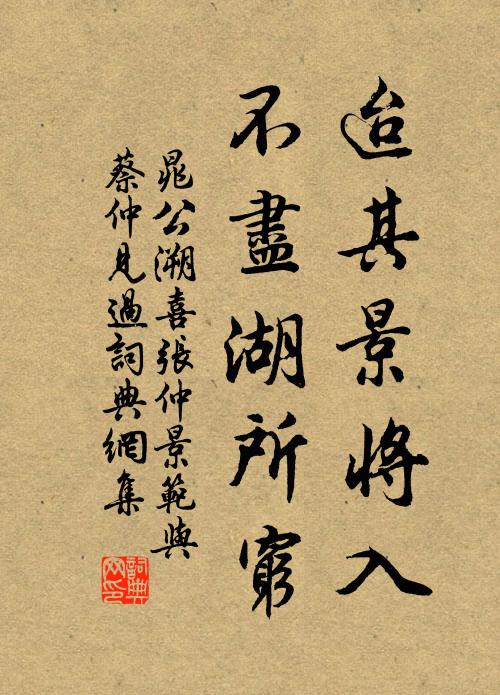 迨其景將入
不盡湖所窮
晁公溯喜張仲景範與
蔡仲見過詞典網集
詞典網印